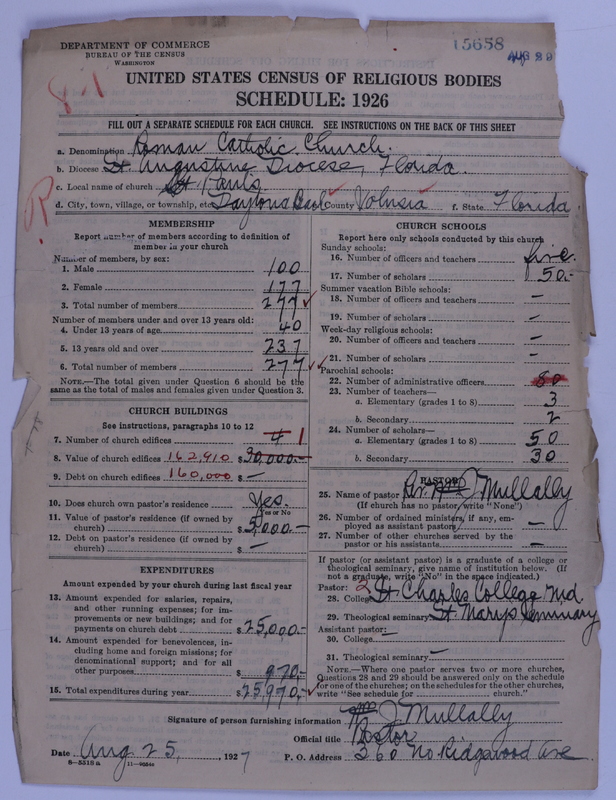 15658
AUG 29
DEPARTMENT OF COMMERCE
BUREAU OF THE CENSUS
WASHINGTON
UNITED STATES CENSUS OF RELIGIOUS BODIES
SCHEDULE: 1926
FILL OUT A SEPARATE SCHEDULE FOR EACH CHURCH. SEE INSTRUCTIONS ON THE BACK OF THIS SHEET
a. Denomination Roman Catholic Church.
b. Diocese St. Augustine Diocese, Florida.
c. Local name of church St Pauls
d. City, town, village, or township, etc. Daytona Beach County Volusia f. State Florida
MEMBERSHIP
Report number of members according to definition of
member in your church
Number of members, by sex:
1. Male 100
2. Female 177
3. Total number of members 277
Number of members under and over 13 years old:
4. Under 13 years of age 40
5. 13 years old and over 237
6. Total number of members 277
NOTE.—The total given under Question 6 should be the
same as the total of males and females given under Question 3.
CHURCH BUILDINGS
See instructions, paragraphs 10 to 12
7. Number of church edifices 4 1
8. Value of church edifices 162,910 $30,000.—
9. Debt on church edifices 160,000 $ —
10. Does church own pastor's residence Yes.
Yes or No
11. Value of pastor's residence (if owned by
church) $5,000.—
12. Debt on pastor's residence (if owned by
church) $ —
EXPENDITURES
Amount expended by your church during last fiscal year
13. Amount expended for salaries, repairs,
and other running expenses; for im-
provements or new buildings; and for
payments on church debt $25,000.—
14. Amount expended for benevolences, in-
cluding home and foreign missions; for
denominational support; and for all
other purposes $ 970.—
15. Total expenditures during year $25,970.—
CHURCH SCHOOLS
Report here only schools conducted by this church
Sunday schools:
16. Number of officers and teachers five.
17. Number of scholars 50.—
Summer vacation Bible schools:
18. Number of officers and teachers —
19. Number of scholars —
Week-day religious schools:
20. Number of officers and teachers —
21. Number of scholars —
Parochial schools:
22. Number of administrative officers 80
23. Number of teachers—
a. Elementary (grades 1 to 8) 3
b. Secondary 2
24. Number of scholars—
a. Elementary (grades 1 to 8) 50
b. Secondary 30
PASTOR
25. Name of pastor Rev. Wm J Mullally
(If church has no pastor, write "None")
26. Number of ordained ministers, if any, em-
ployed as assistant pastors —
27. Number of other churches served by the
pastor or his assistants —
If pastor (or assistant pastor) is a graduate of a college or
theological seminary, give name of institution below. (If
not a graduate, write "No" in the space indicated.)
Pastor: 2
28. College St Charles College Md.
29. Theological seminary St. Marys Seminary
Assistant pastor:
30. College —
31. Theological seminary —
NOTE.—Where one pastor serves two or more churches,
Questions 28 and 29 should be answered only on the schedule
for one of the churches; on the schedules for the other churches,
write "See schedule for church."
Signature of person furnishing information Wm J Mullally
Official title Pastor
Date Aug 25, 1927 P. O. Address 260 No Ridgewood Ave
8—5518a 11—9234